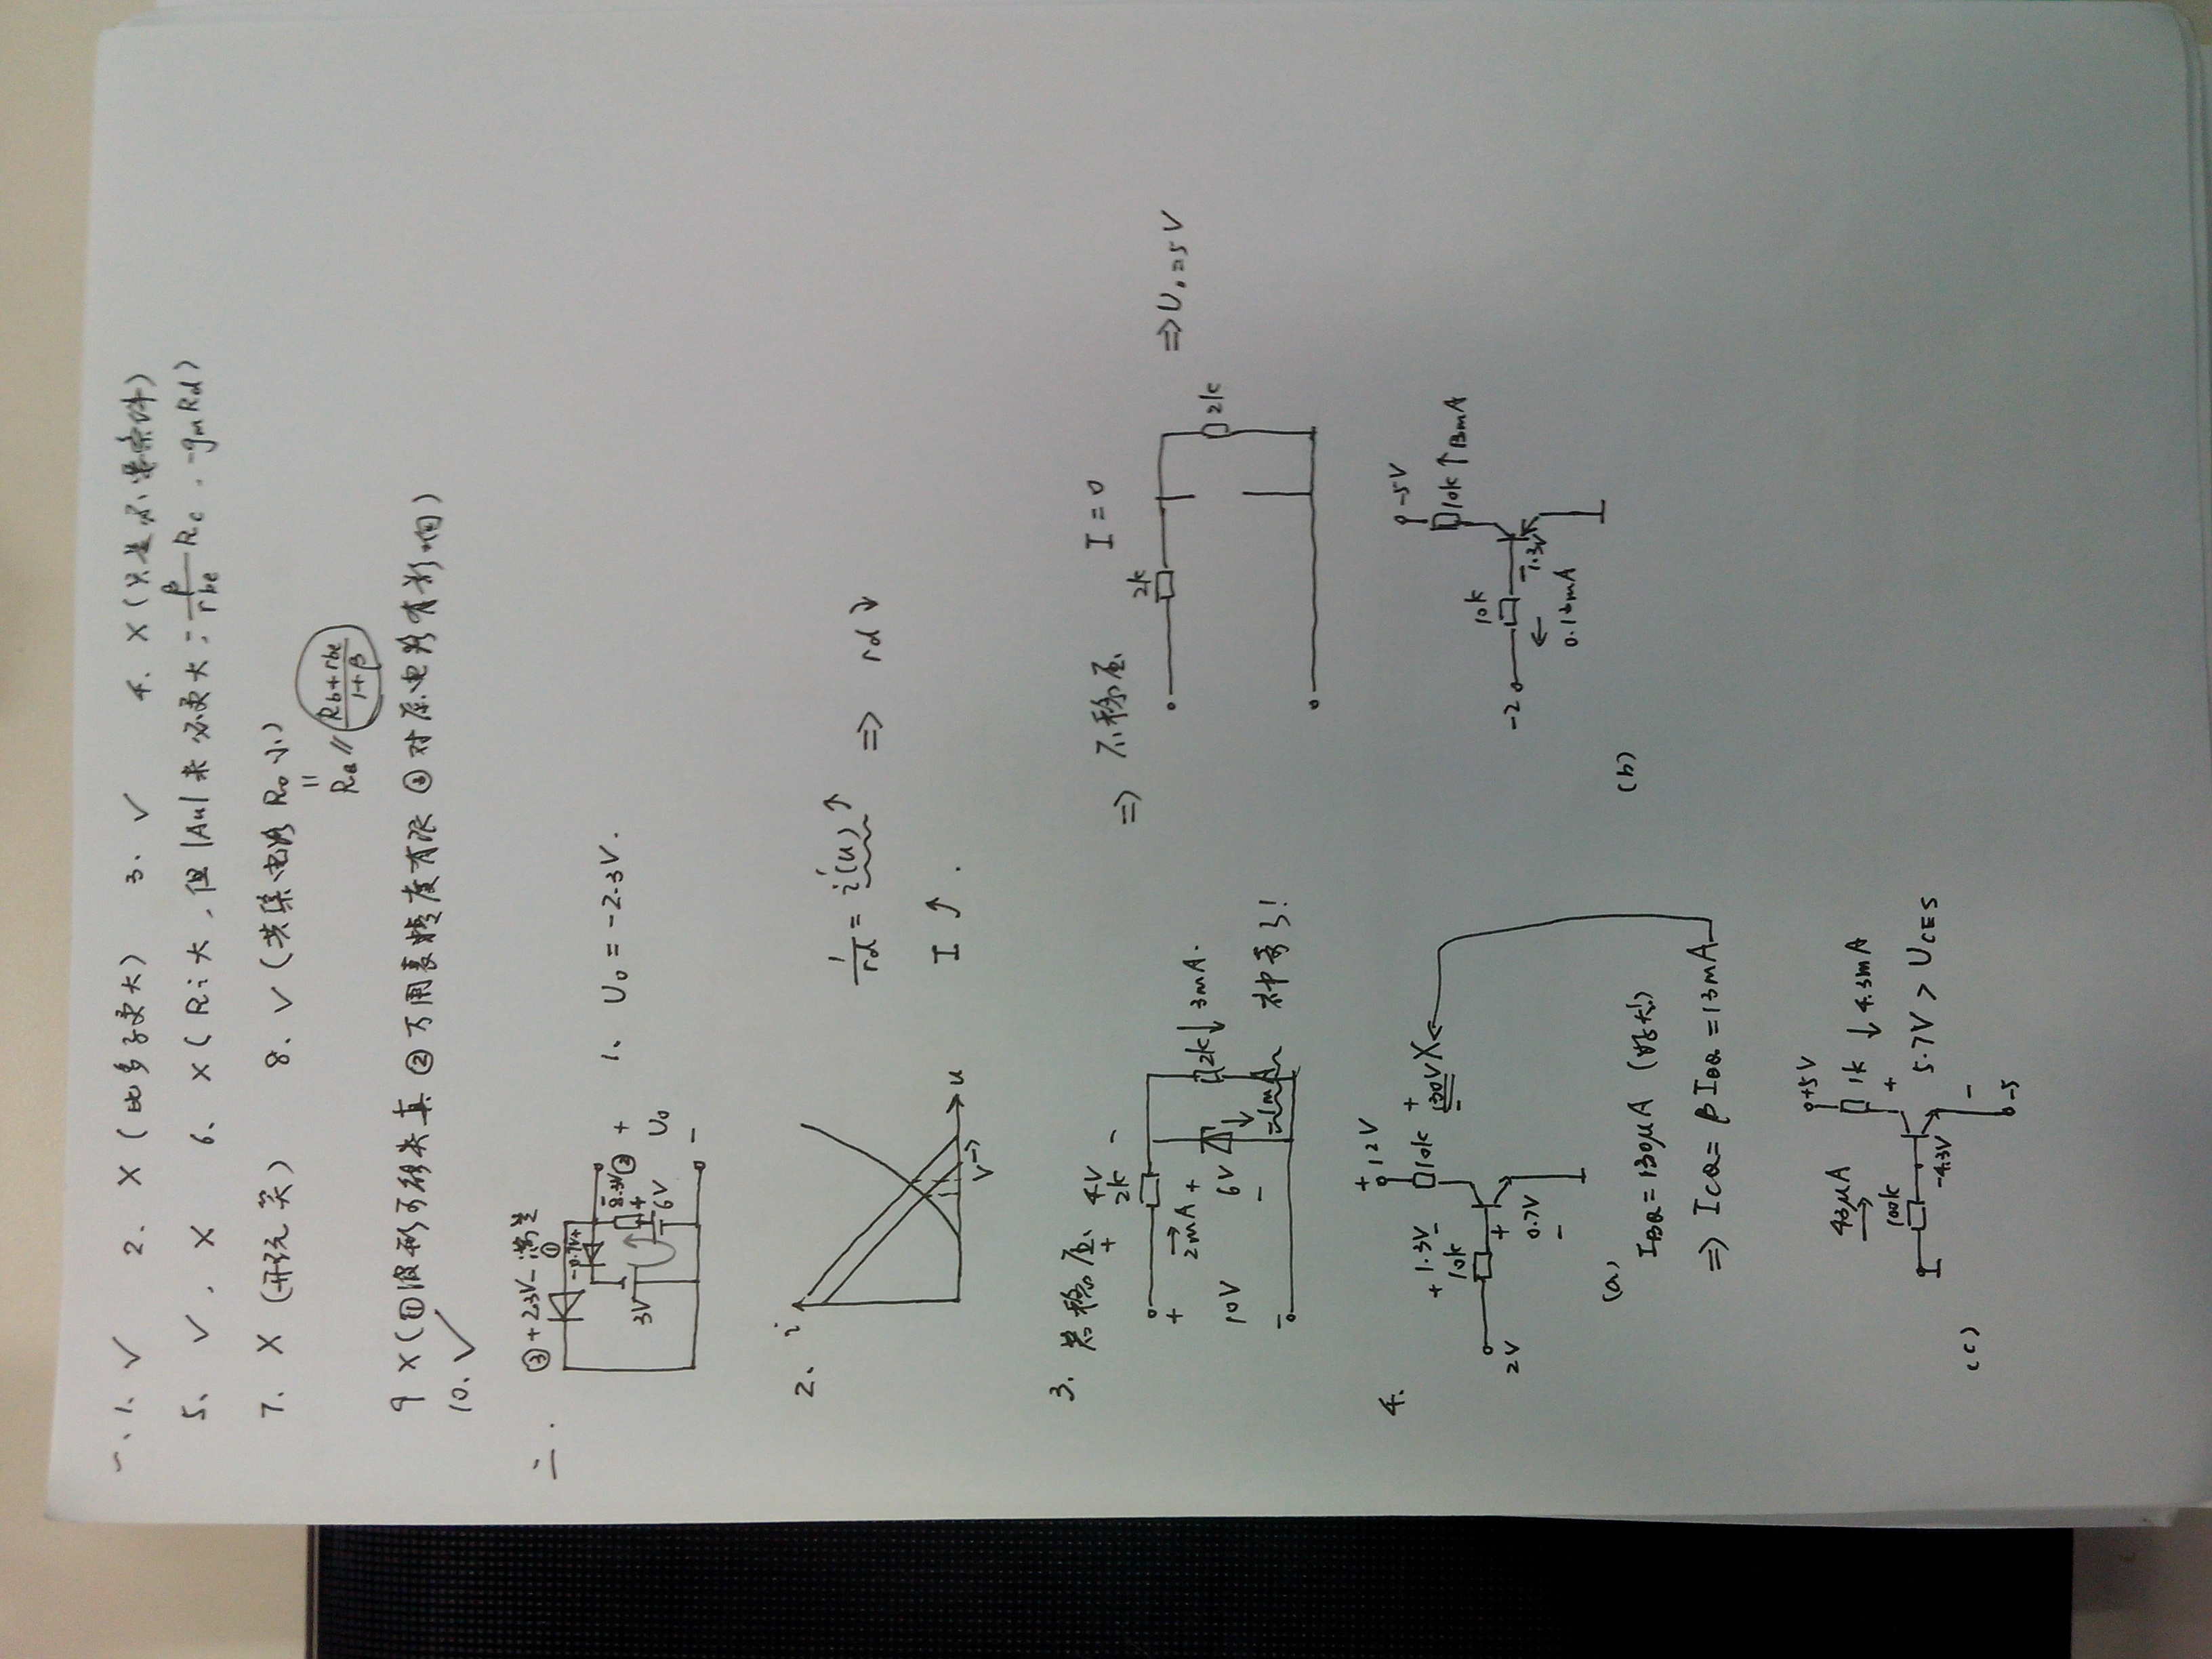 一、1、✓ 2、X（比多子更大） 3、✓ 4、X（只是必要条件）
5、✓，X 6、X（Ri大，但|Au|未必更大：-β/rbe Rc，-gmRd）
7、X（开玩笑） 8、✓（共集电路Ro小）
=
Re // (Rb+rbe)/(1+β)
9 X（①波形可能失真 ②万用表精度有限 ③对原电路有影响）
10、✓
二. ③ +2.3V- 满足
①
-0.7V+
3V
- 8.3V ② +
+
6V U0
-
1、 U0 = -2.3V.
2、 i
u
V→
1/rd = i'(u) ↑ => rd ↓
I ↑ .
3. 若稳压
4V
+ 2k -
+
2mA
10V
-
+
6V
-
2k ↓ 3mA.
=-1mA 神奇了!
=> 不稳压 I = 0
2k
2k
=> U0=5V
4.
+ 12V
10k
+
130V X
-
+ 1.3V -
10k
2V
+
0.7V
-
(a)
IBQ = 130μA (好大!)
=> ICQ = βIBQ = 13mA
-5V
10k ↑ 13mA
10k
-2
0.13mA
(b)
+5V
43μA
→
1k ↓ 4.3mA
100k
+
-4.3V
5.7V > UCES
-
-5
(c)